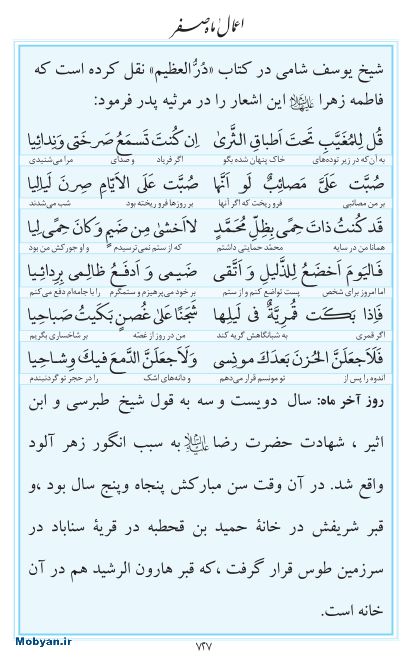 اعمال ماه صفر
شیخ یوسف شامی در کتاب «دُرُّالعظیم» نقل کرده است که
فاطمه زهرا علیهاالسلام این اشعار را در مرثیه پدر فرمود:
قُل لِلمُغَیَّبِ تَحتَ اَطباقِ الثَّریٰ اِن کُنتَ تَسمَعُ صَرخَتی وَنِدائِیا
به آن‌که در زیر توده‌های خاک پنهان شده بگو اگر فریاد و صدای مرا می‌شنیدی
صُبَّت عَلَیَّ مَصائِبٌ لَو اَنَّها صُبَّت عَلَی الاَیّامِ صِرنَ لَیالِیا
بر من مصائبی فرو ریخت که اگر آنها بر روزها فرو ریخته بود شب می‌شدند
قَد کُنتُ ذاتَ حِمیً بِظِلِّ مُحَمَّدٍ لا اَخشیٰ مِن ضَیمٍ وَکانَ حِمیً لِیا
همانا من در سایه محمّد حمایتی داشتم که از ستم نمی‌ترسیدم و او جورکش من بود
فَالیَومَ اَخضَعُ لِلذَّلیلِ وَ اَتَّقی ضَیمی وَ اَدفَعُ ظالِمی بِرِدائِیا
اما امروز برای شخص پست تواضع کنم و از ستم بر خود می‌پرهیزم و ستمگرم را با جامه‌ام دفع می‌کنم
فَاِذا بَکَت قُمرِیَّةٌ فی لَیلِها شَجَنًا عَلیٰ غُصنٍ بَکَیتُ صَباحِیا
اگر قمری به شبانگاهش گریه کند من در روز از غصّه بر شاخساری بگریم
فَلَاَجعَلَنَّ الحُزنَ بَعدَكَ مونِسی وَلَاَجعَلَنَّ الدَّمعَ فیكَ وِشاحِیا
اندوه را پس از تو مونسم قرار می‌دهم و دانه‌های اشک را در حجر تو گردنبندم
روز آخر ماه: سال دویست و سه به قول شیخ طبرسی و ابن
اثیر ، شهادت حضرت رضا علیه‌السلام به سبب انگور زهر آلود
واقع شد. در آن وقت سن مبارکش پنجاه وپنج سال بود ،و
قبر شریفش در خانهٔ حمید بن قحطبه در قریهٔ سناباد در
سرزمین طوس قرار گرفت ،که قبر هارون الرشید هم در آن
خانه است.
Mobyan.ir
۷۲۷